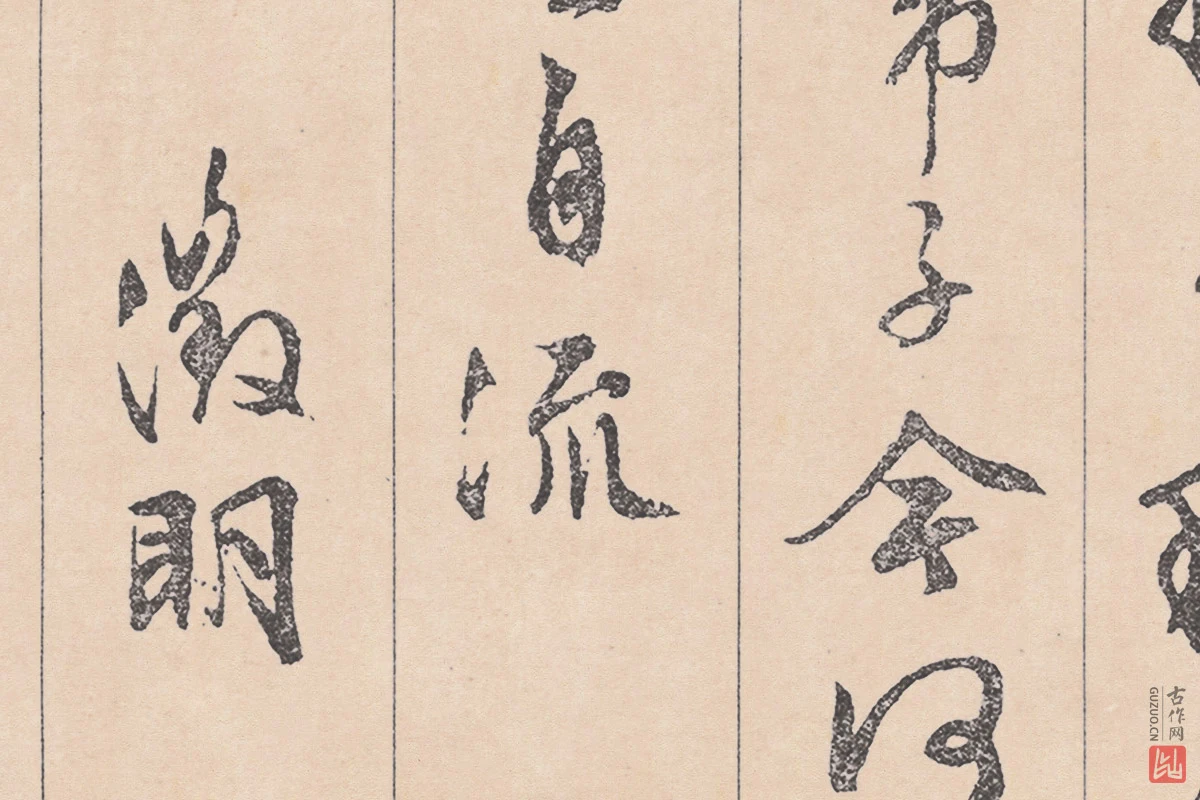 帝子今何
自流
徵明
古作网
GUZUO.CN